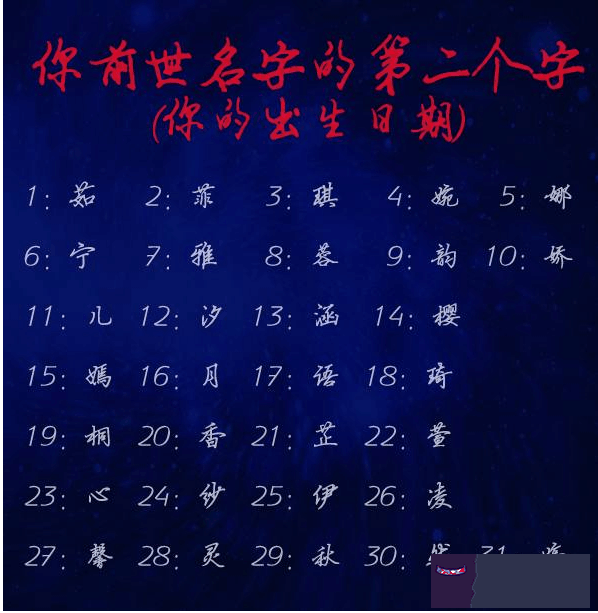 你前世名字的第二个字
(你的出生日期)
1: 茹 2: 菲 3: 琪 4: 婉 5: 娜
6: 宁 7: 雅 8: 蓉 9: 韵 10: 娇
11: 儿 12: 汐 13: 涵 14: 樱
15: 嫣 16: 月 17: 语 18: 琦
19: 桐 20: 香 21: 芷 22: 萱
23: 心 24: 纱 25: 伊 26: 凌
27: 馨 28: 灵 29: 秋 30: 31: